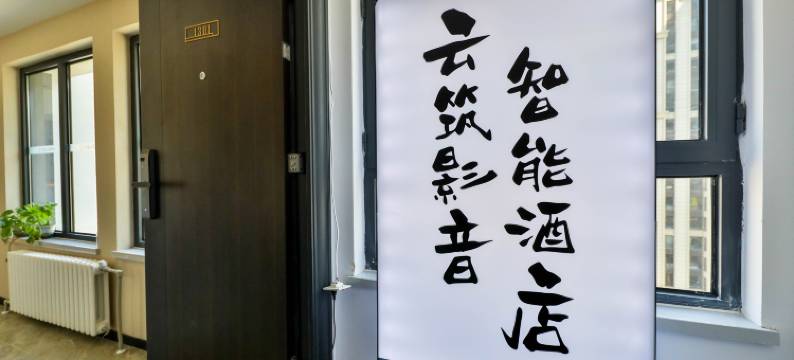 云筑影音
智能酒店
1301